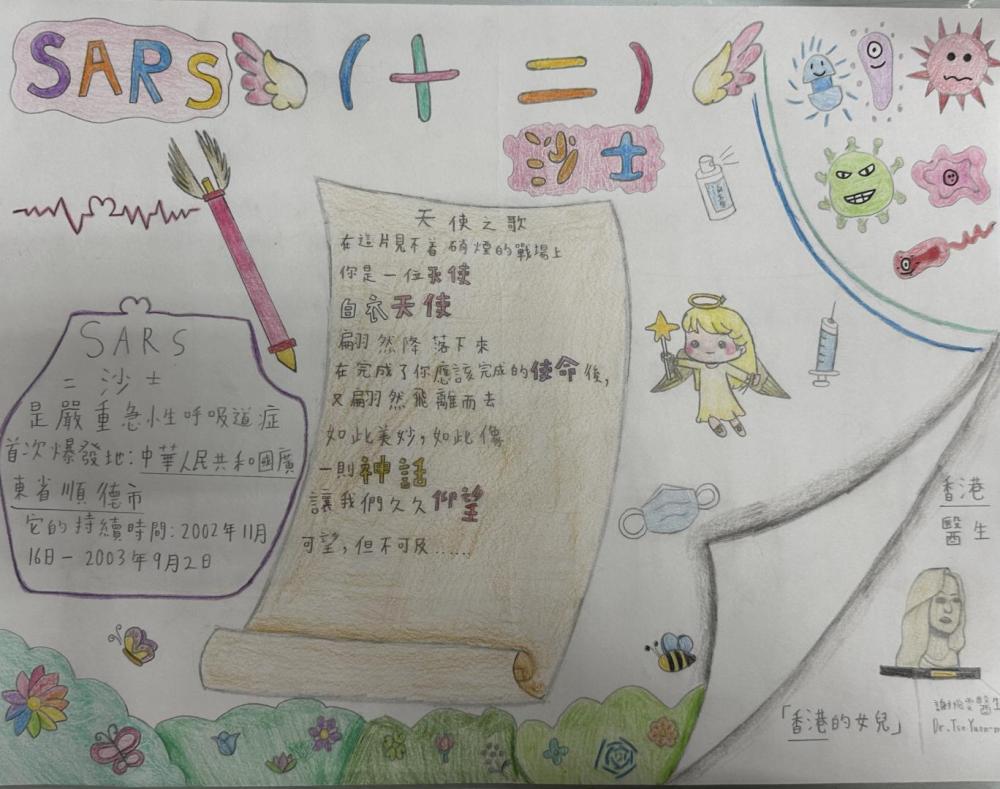 SARS
( + = )
沙士
天使之歌
在這片見不着硝煙的戰場上
你是一位天使
白衣天使
翩然降落下來
在完成了你應該完成的使命後,
又翩然飛離而去
如此美妙,如此像
一則神話
讓我們久久仰望
可望,但不可及......
SARS
= 沙士
是嚴重急性呼吸道症
首次爆發地:中華人民共和國廣
東省順德市
它的持續時間:2002年11月
16日-2003年9月2日
香港
醫生
「香港的女兒」
醫生
Dr. Tse Yuen-m